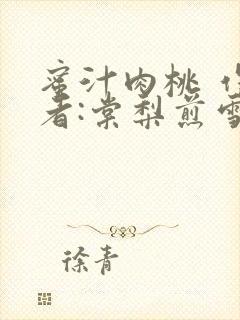 蜜汁肉桃
者:棠梨煎雪
徐青